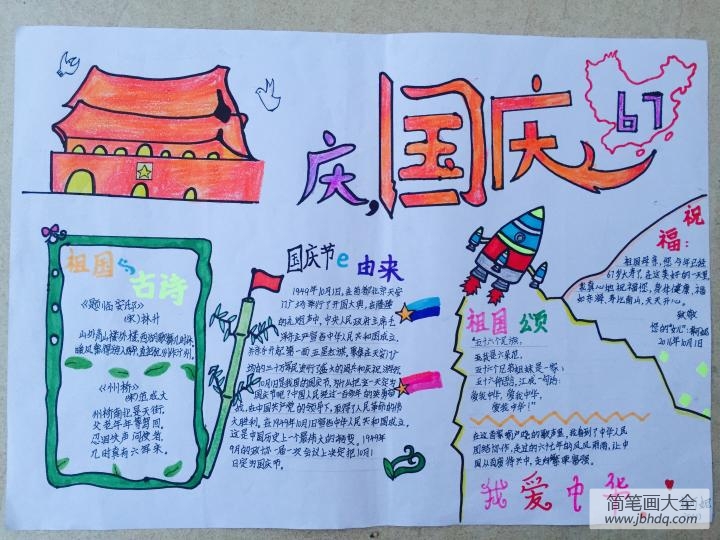 庆,国庆
67
祖国の古诗
《题临安邸》
(宋)林升
山外青山楼外楼,西湖歌舞几时休。
暖风熏得游人醉,直把杭州作汴州。
《州桥》
(宋)范成大
州桥南北是天街,
父老年年等驾回。
忍泪失声问使者,
几时真有六军来。
国庆节e由来
1949年10月1日,在首都北京天安
门广场举行了开国大典,在隆隆
的礼炮声中,中央人民政府主席毛
泽东庄严宣告中华人民共和国成立,
并亲手升起第一面五星红旗。聚集在天安门广
场的三十万军民进行了盛大的阅兵和庆祝游行
10月1日是我国的国庆节,为什么把这一天定为
国庆节呢?中国人民经过一百多年的英勇奋
战,在中国共产党的领导下,取得了人民革命的伟
大胜利。在1949年10月1日宣告中华人民共和国成立。
这是中国历史上一个最伟大的转变。1949年
9月的政协一届一次会议上决定把10月1
日定为国庆节。
祖国颂
"五十六个民族,
五十六个兄弟姐妹是一家;
五十六种语言,汇成一句话:
爱我中华,爱我中华,
爱我中华!"
在这首家喻户晓的歌声里,我看到了中华人民
团结协作,走过的六十七年的风风雨雨,让中
国从
我爱中华
祝福:
祖国母亲,您今年已经
67岁大寿了,在这美好的一天里,
我衷心地祝福您,身体健康,福
如东海,寿比南山,天天开心。
致敬
2016年10月1日
简笔画大全
www.jbhdq.com